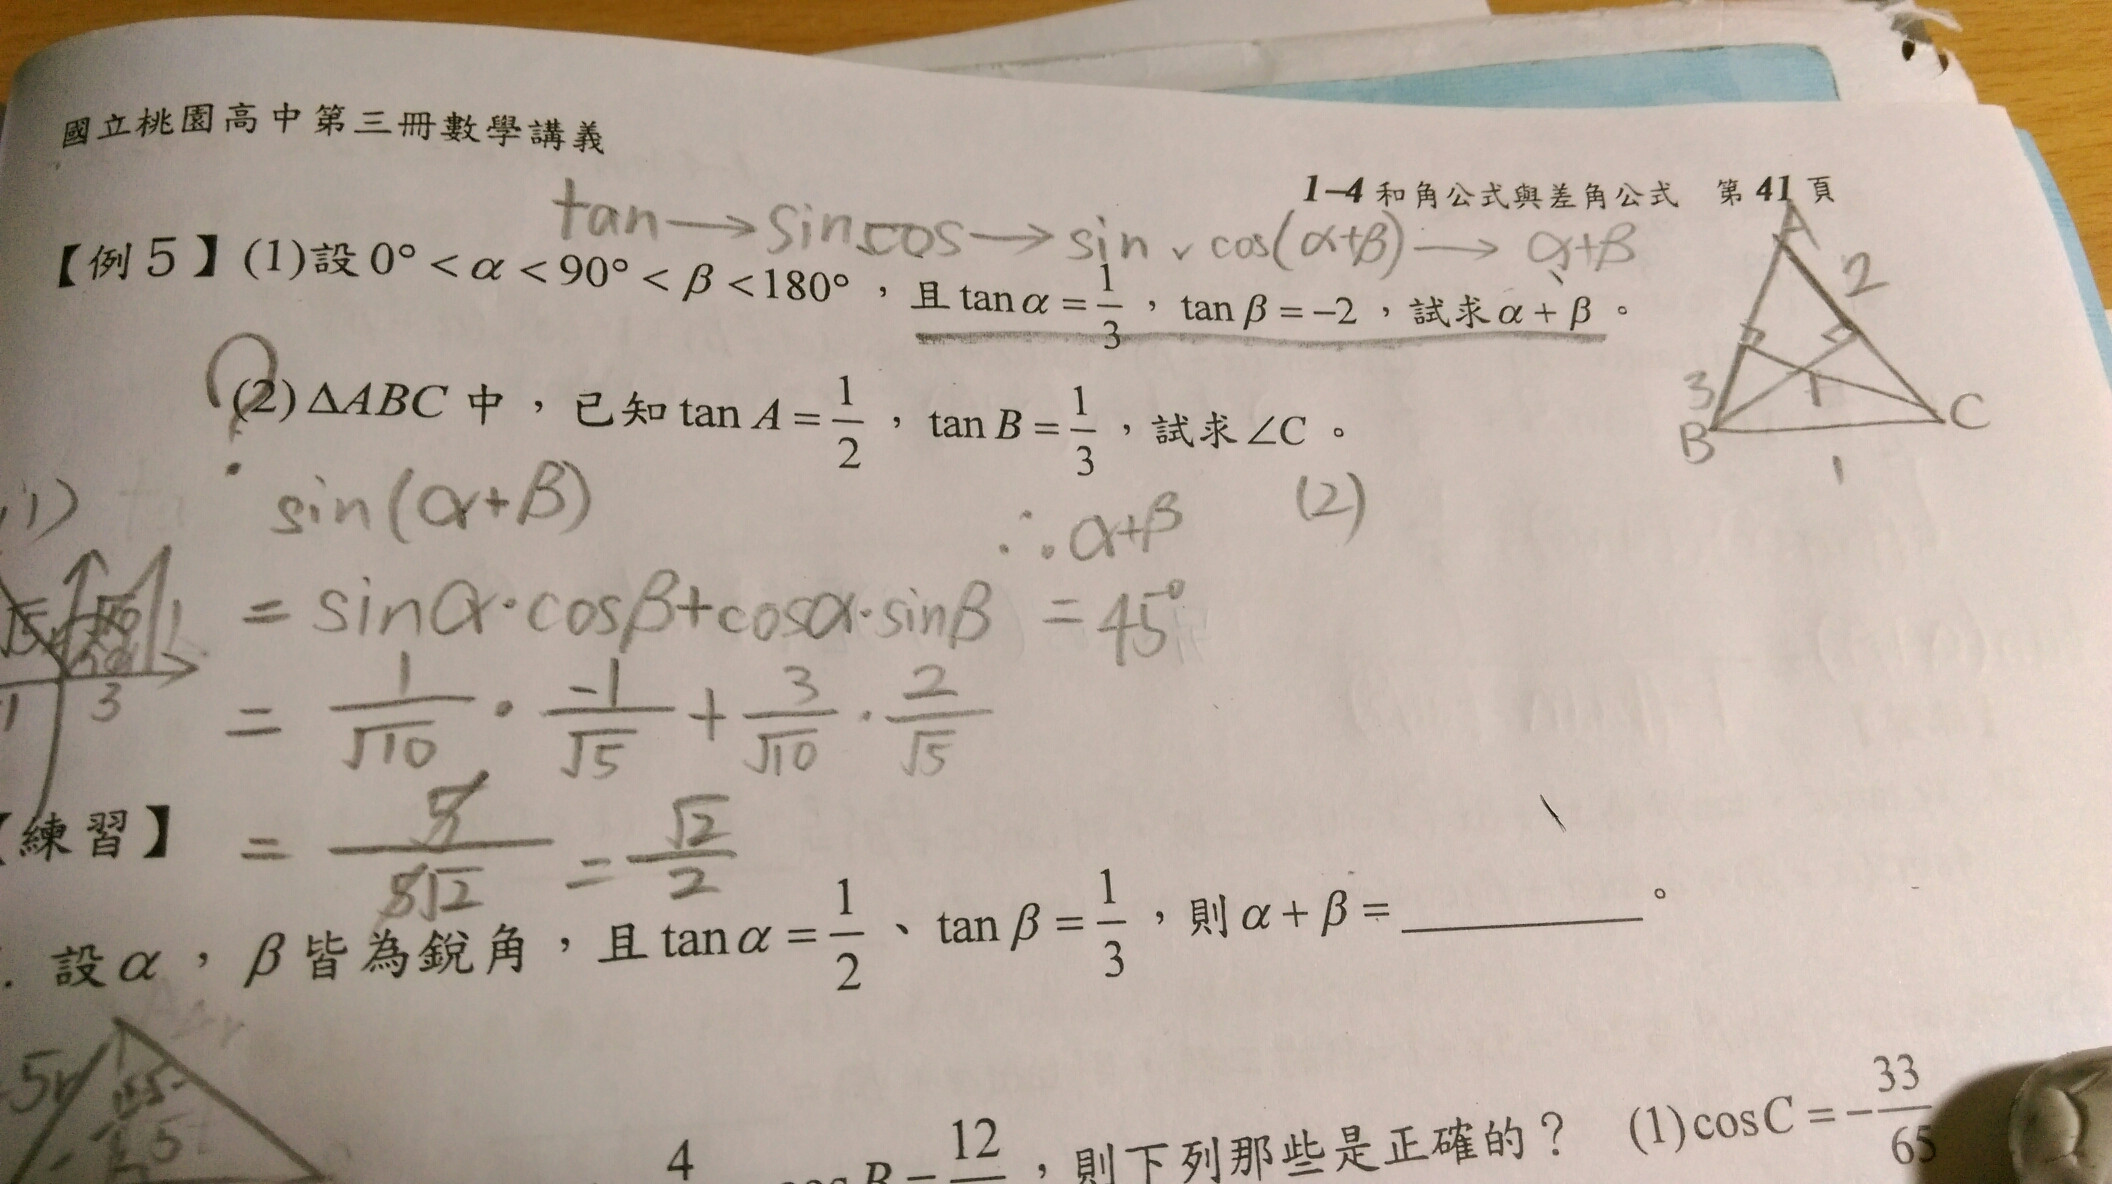 國立桃園高中第三冊數學講義
1-4 和角公式與差角公式 第 41 頁
tan → sin、cos → sin、cos(α+β) → α+β
【例 5】(1)設 0° < α < 90° < β < 180°，且 tan α = 1/3，tan β = -2，試求 α + β。
(2) ΔABC 中，已知 tan A = 1/2，tan B = 1/3，試求 ∠C。
A
2
3
1
B
C
1
?
(1)
sin(α+β)
∴ α+β
(2)
= sinα·cosβ+cosα·sinβ
= 45°
√10
1
3
= 1/√10 · -1/√5 + 3/√10 · 2/√5
【練習】
= 5/5√2 = √2/2
. 設 α，β 皆為銳角，且 tan α = 1/2、tan β = 1/3，則 α + β = ________。
4
12，則下列那些是正確的？ (1) cos C = -33/65